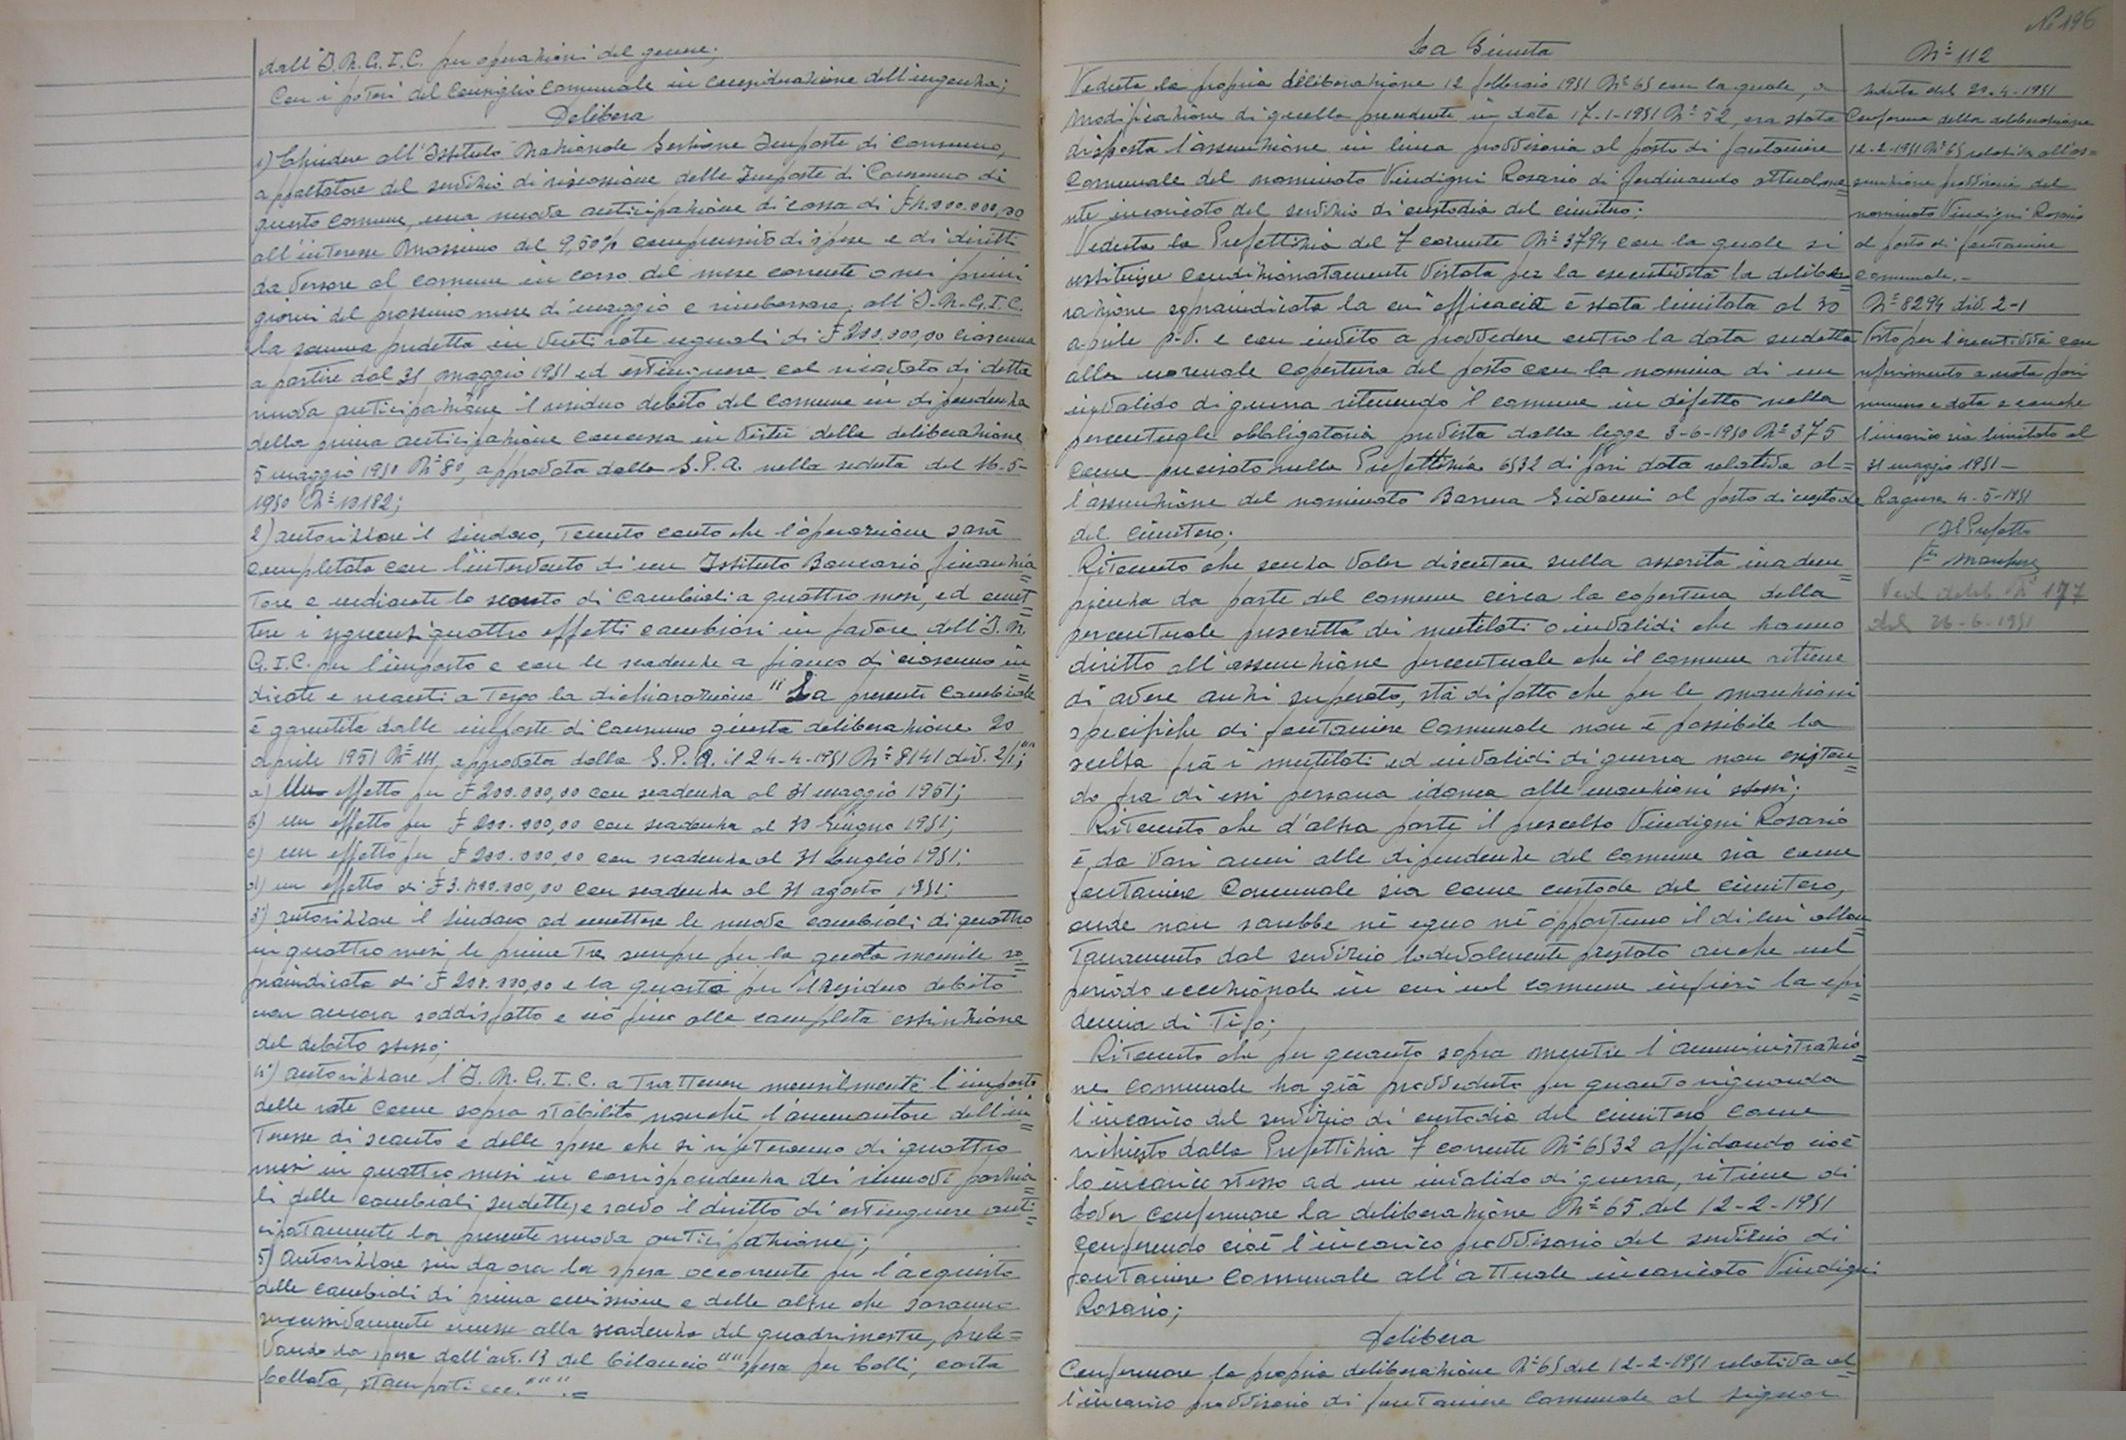 dall'I.N.G.I.C. per operazioni del genere;
Con i poteri del Consiglio Comunale in considerazione dell'urgenza;
Delibera
1) Chiedere all'Istituto Nazionale Gestione Imposte di Consumo,
appaltatore del servizio di riscossione delle Imposte di Consumo di
questo comune, una nuova anticipazione di cassa di £ 4.000.000,00
all'interesse massimo del 9,50% comprensivo di spese e di diritti
da versare al comune in corso del mese corrente o nei primi
giorni del prossimo mese di maggio e rimborsare all'I.N.G.I.C.
la somma predetta in venti rate uguali di £ 200.000,00 ciascuna
a partire dal 31 maggio 1951 ed estinguere col ricavato di detta
nuova anticipazione il residuo debito del Comune in dipendenza
della prima anticipazione concessa in virtù della deliberazione
5 maggio 1950 N° 80, approvata dalla G.P.A. nella seduta del 16-5-
1950 N° 10182;
2) autorizzare il Sindaco, tenuto conto che l'operazione sarà
completata con l'intervento di un Istituto Bancario finanzia=
tore e mediante lo sconto di cambiali a quattro mesi, ed emet=
tere i seguenti quattro effetti cambiari in favore dell'I.N.
G.I.C. per l'importo e con le scadenze a fianco di ciascuno in=
dicate e recanti a tergo la dichiarazione "La presente cambiale
è garentita dalle imposte di Consumo giusta deliberazione 20
aprile 1951 N° 111, approvata dalla G.P.A. il 24-4-1951 N° 8141 div. 2/1;""
a) Un effetto per £ 200.000,00 con scadenza al 31 maggio 1951;
b) un effetto per £ 200.000,00 con scadenza al 30 Giugno 1951;
c) un effetto per £ 200.000,00 con scadenza al 31 Luglio 1951;
d) un effetto di £ 3.400.000,00 con scadenza al 31 agosto 1951;
3°) autorizzare il Sindaco ad emettere le nuove cambiali di quattro
in quattro mesi le prime tre sempre per la quota mensile so=
praindicata di £ 200.000,00 e la quarta per il residuo debito
non ancora soddisfatto e ciò fino alla completa estinzione
del debito stesso;
4°) autorizzare l'I.N.G.I.C. a trattenere mensilmente l'importo
delle rate come sopra stabilito nonché l'ammontare dell'in=
teresse di sconto e delle spese che si ripeteranno di quattro
mesi in quattro mesi in corrispondenza dei rinnovi parzia=
li delle cambiali sudette, e salvo il diritto di estinguere anti=
cipatamente la presente nuova anticipazione;
5) Autorizzare sin da ora la spesa occorrente per l'acquisto
delle cambiali di prima emissione e delle altre che saranno
successivamente emesse alla scadenza del quadrimestre, prele=
vando la spesa dall'art. 13 del bilancio ""spesa per bolli, carta
bollata, stampati ecc.""".=
N° 196
La Giunta
Veduta la propria deliberazione 12 febbraio 1951 N° 65 con la quale, a
modificazione di quella precedente in data 17-1-1951 N° 52, era stata
disposta l'assunzione in linea provvisoria al posto di fontaniere
Comunale del nominato Vindigni Rosario di Ferdinando attualme=
nte incaricato del servizio di custodia del cimitero;
Veduta la Prefettizia del 7 corrente N° 3794 con la quale si
restituisce condizionatamente vistata per la esecutività la delibe=
razione sopraindicata la cui efficacia è stata limitata al 30
aprile p.v. e con invito a provvedere entro la data sudetta
alla normale copertura del posto con la nomina di un
invalido di guerra ritenendo il comune in difetto nella
percentuale obbligatoria prevista dalla legge 3-6-1950 N° 375
come precisato nella Prefettizia 6532 di pari data relativa al=
l'assunzione del nominato Barna Giovanni al posto di custode
del cimitero;
Ritenuto che senza voler discutere sulla asserita inadem=
pienza da parte del comune circa la copertura della
percentuale prescritta dei mutilati o invalidi che hanno
diritto all'assunzione percentuale che il comune ritiene
di avere anzi superato, sta di fatto che per le mansioni
specifiche di fontaniere Comunale non è possibile la
scelta frà i mutilati ed invalidi di guerra non esisten=
do fra di essi persona idonea alle mansioni stesse;
Ritenuto che d'altra parte il prescelto Vindigni Rosario
è da vari anni alle dipendenze del comune sia come
fontaniere Comunale sia come custode del cimitero,
onde non sarebbe né equo né opportuno il di lui allon=
tanamento dal servizio lodevolmente prestato anche nel
periodo eccezionale in cui nel comune infierì la epi=
demia di Tifo;
Ritenuto che per quanto sopra mentre l'amministrazio=
ne comunale ha già provveduto per quanto riguarda
l'incarico del servizio di custodia del cimitero come
richiesto dalla Prefettizia 7 corrente N° 6532 affidando cioè
lo incarico stesso ad un invalido di guerra, ritiene di
dover confermare la deliberazione N° 65 del 12-2-1951
conferendo cioè l'incarico provvisorio del servizio di
fontaniere Comunale all'attuale incaricato Vindigni
Rosario;
Delibera
Confermare la propria deliberazione N° 65 del 12-2-1951 relativa al=
l'incarico provvisorio di fontaniere comunale al signor
N° 112
seduta del 20-4-1951
Conferma della deliberazione
12-2-1951 N° 65 relativa all'as=
sunzione provvisoria del
nominato Vindigni Rosario
al posto di fontaniere
comunale.-
N° 8294 div. 2-1
Visto per l'esecutività con
riferimento a nota pari
numero e data e canche
l'incarico sia limitato al
31 maggio 1951-
Ragusa 4-5-1951
Il Prefetto
Ved. delib. N° 177
del 26-6-1951